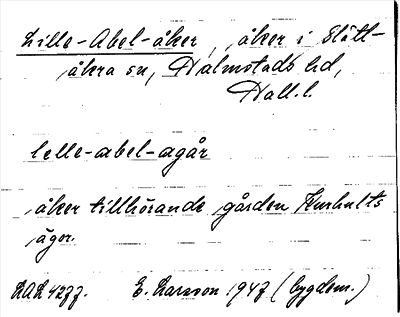 Lille-Abel-åker, åker i Slätt-
åkra sn, Halmstads hd,
Hall. l.
lelle-abel-agår
åker tillhörande gården Kurhults
ägor.
LAL 4277. E. Larsson 1947 (bygdem.)